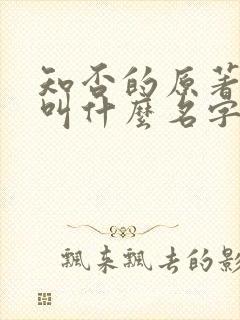 知否的原著
叫什麼名字
飄来飄去的影